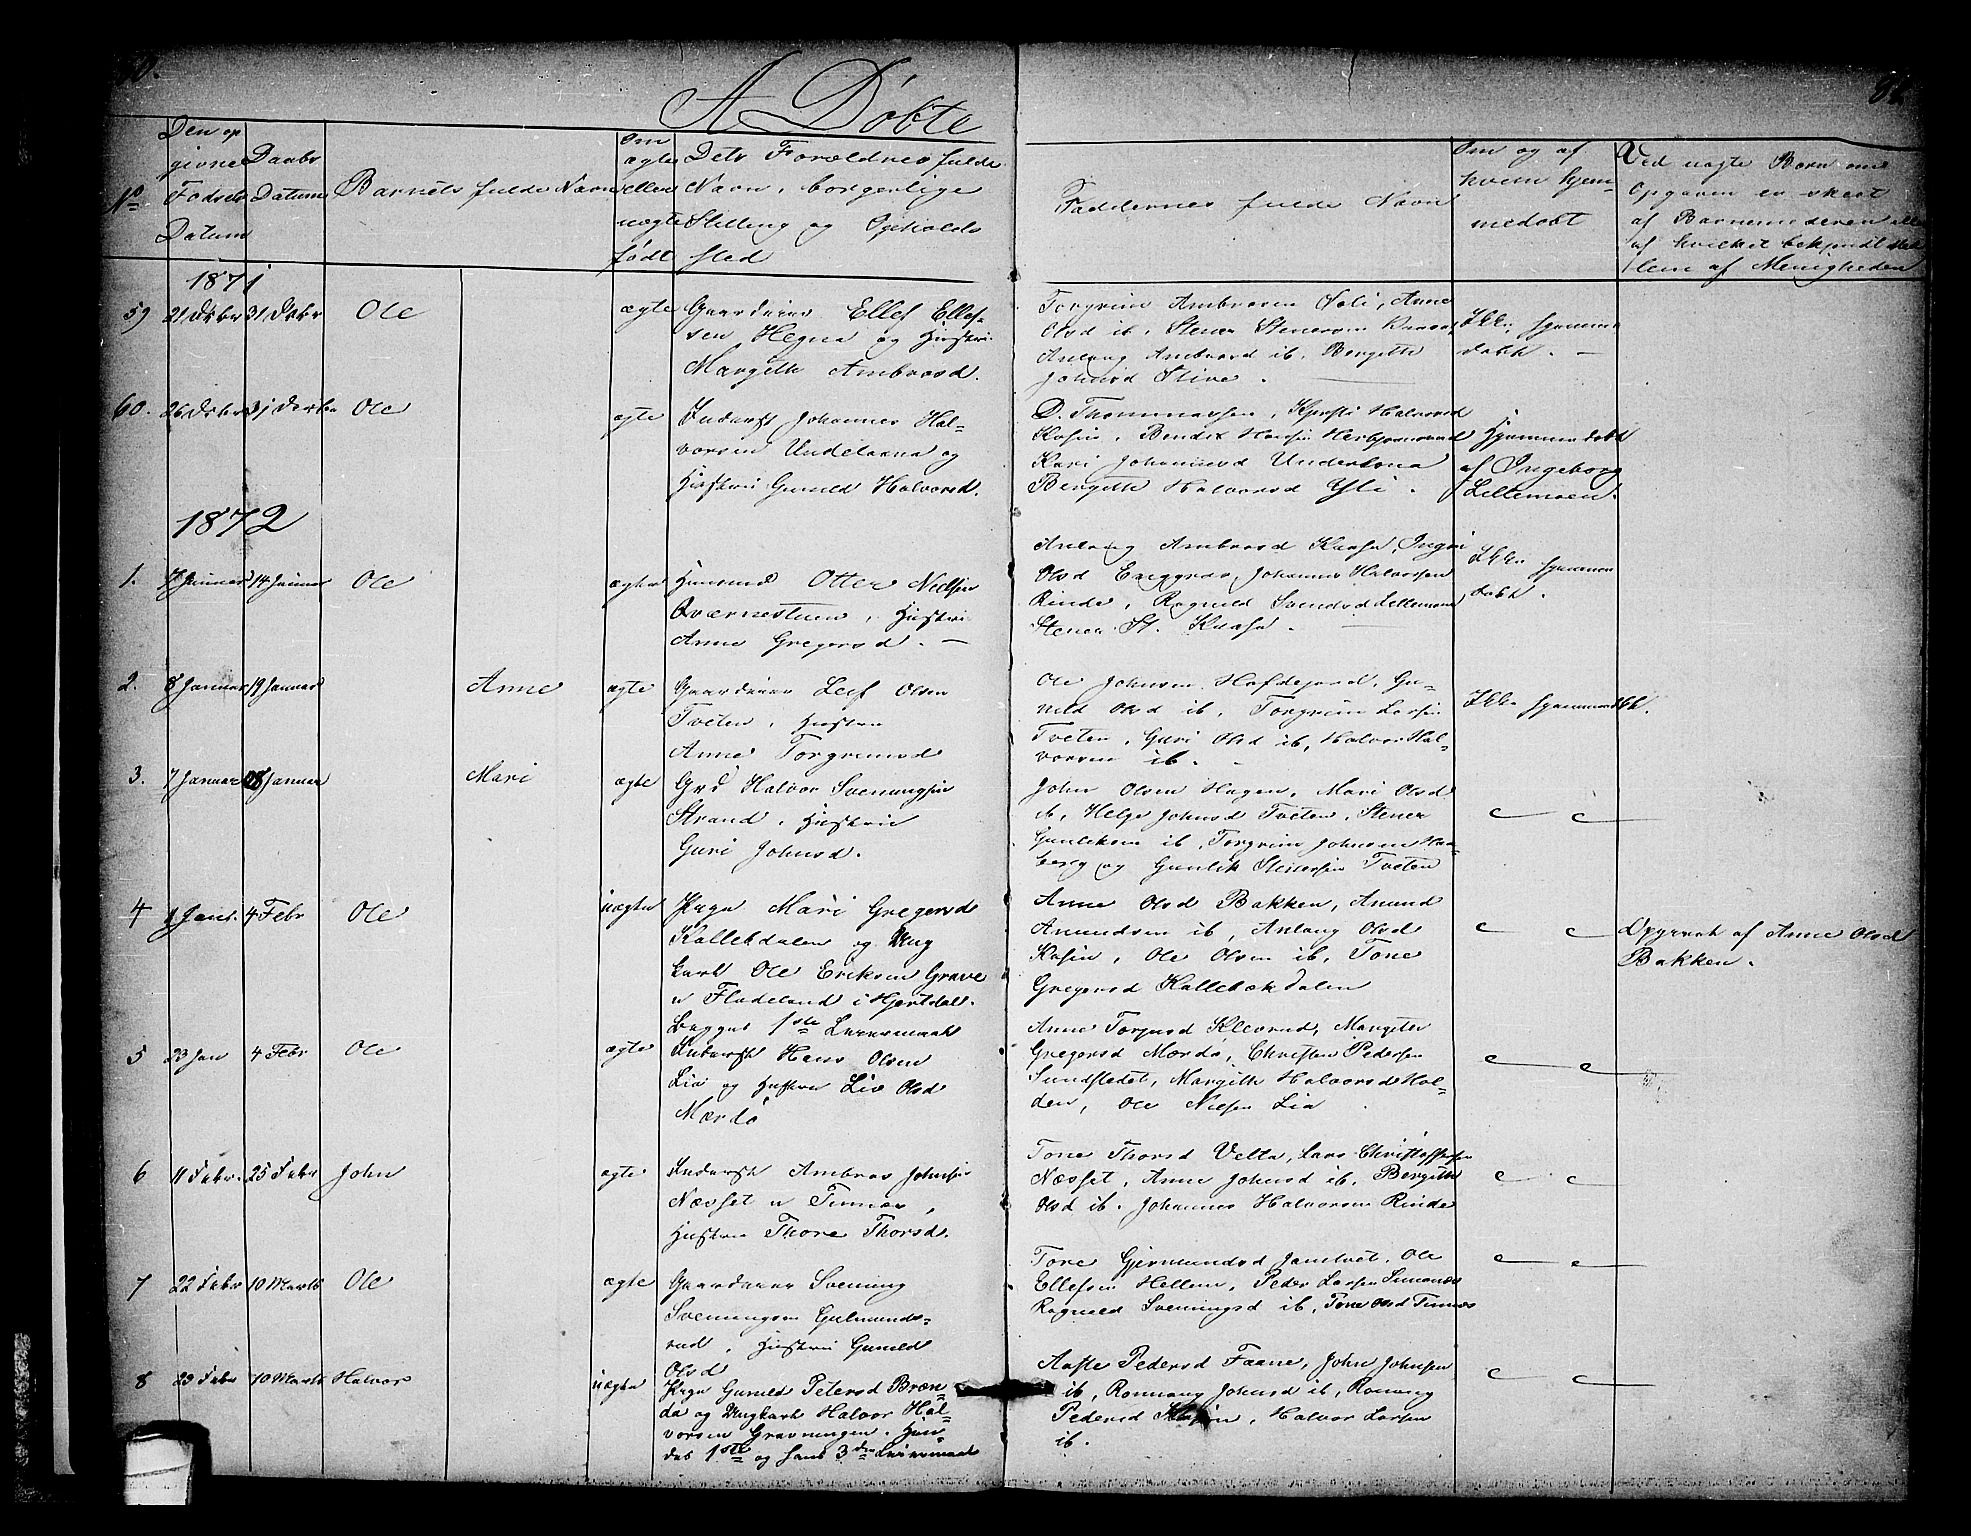 A Døbte
No
Den op
givne
Fødsels
Datum
Daabs
Datum
Barnets fulde Navn
Om
ægte
eller
uægte
født
Dets Forældres fulde
Navn, borgerlige
Stilling og Opholds
sted
Faddernes fulde Navn
Om og af
hvem hjem-
medøbt
Ved uægte Børn om
Opgaven er skeet
af Barnemoderen eller
af hvilket bekjendt Med
lem af Menigheden
1871
59 21 Dcbr 31 Dcbr Ole ægte
Gaardeier Ellef Ellef-
sen Hegna og Hustru
Margith Ambrosd.
Torgrim Ambrosen Soli, Anne
Olsd ib, Stener Stenersen
Anlaug Ambrosd ib, Bergith
Johnsd Stive.
Ikke hjemme
døbt.
60. 26 Dcbr 31 Decbr Ole ægte
Inderst Johannes Hal-
vorsen Undeloena og
Hustru Gunild Halvorsd.
D. Thommassen, Kjersti Halvorsd
Kasin, Bendix Hansen
Kari Johannesd
Bergith Halvorsd Yli.
Hjemmedøbt
af Ingeborg
Lillemoen.
1872
1. 7 Januar 14 Januar Ole ægte
Huusmd Otter Nielsen
Qværnestuen, Hustru
Anne Gregersd.
Anlaug Ambrosd Kaasa, Ingri
Olsd Johannes Halvorsen
Rinde, Ragnild Svendsd Lillemoen
Stener St. Kaasa.
Ikke hjemme
døbt.
2. 8 Januar 19 Januar Anne ægte
Gaardeier Leif Olsen
Tveten, Hustru
Anne Torgrimsd
Ole Johnsen Gu-
nild Olsd ib, Torgrim Larsen
Tveten, Guri Olsd ib, Halvor Hal-
vorsen ib.
Ikke hjemmedøbt.
3. 7 Januar 28 Januar Mari ægte
Grd Halvor Sveningsen
Strand, Hustru
Guri Johnsd.
John Olsen Hagen, Mari Olsd
ib, Helge Johnsd Tveten, Stener
Gunleksen ib, Torgrim Johnsen Haa-
berg og Gunlik Stenersen Tveten
4 Jan. 4 Febr Ole uægte
Pige Mari Gregersd
Kallekdalen og Ung
karl Ole Eriksen Grave
u Fladeland i Hjertdal.
Begges 1ste Leiermaal
Anne Olsd Bakken, Amund
Amundsen ib, Anlaug Olsd
Kasin, Ole Olsen ib, Tone
Gregersd Kallebækdalen
Opgivet af Anne Olsd
Bakken.
5 23 Jan 4 Febr Ole ægte
Inderst Hans Olsen
Lia og Hustru Live Olsd
Mærdø
Anne Torjusd Kleverud, Margith
Gregersd Mærdø, Christen Pedersen
Sundstedet, Margith Halvorsd Hol-
den, Ole Nielsen Lia
6 11 Febr. 25 Febr John ægte
Inderst Ambros Johnsen
Næsset u Tinnæs,
Hustru Thore Thorsd.
Tone Thorsd Velta, Lars Christoffersen
Næsset, Anne Johnsd ib, Bergith
Olsd ib, Johannes Halvorsen Rinde
7 22 Febr 10 Marts Ole ægte
Gaardeier Svening
Sveningsen Gulmunds-
rud, Hustru Gunild
Olsd
Tore Gjermundsd Jamtvet, Ole
Ellefsen Hellem, Peder Larsen
Ragnild Sveningsd ib, Tone Olsd Tinnæs
8 23 Febr 10 Marts Halvor uægte
Pige Gunild Petersd Bræn-
da og Ungkarl Halvor Hal-
vorsen Gravningen. Hen-
des 1ste og hans 3die Leiermaal
Aaste Pedersd Faane, John Johnsen
ib, Rannaug Johnsd ib, Rannaug
Pedersd Halvor Larsen
ib.